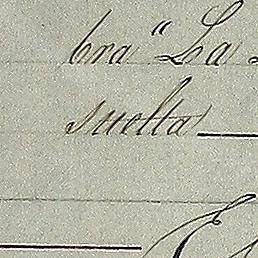 bra "La
suelta